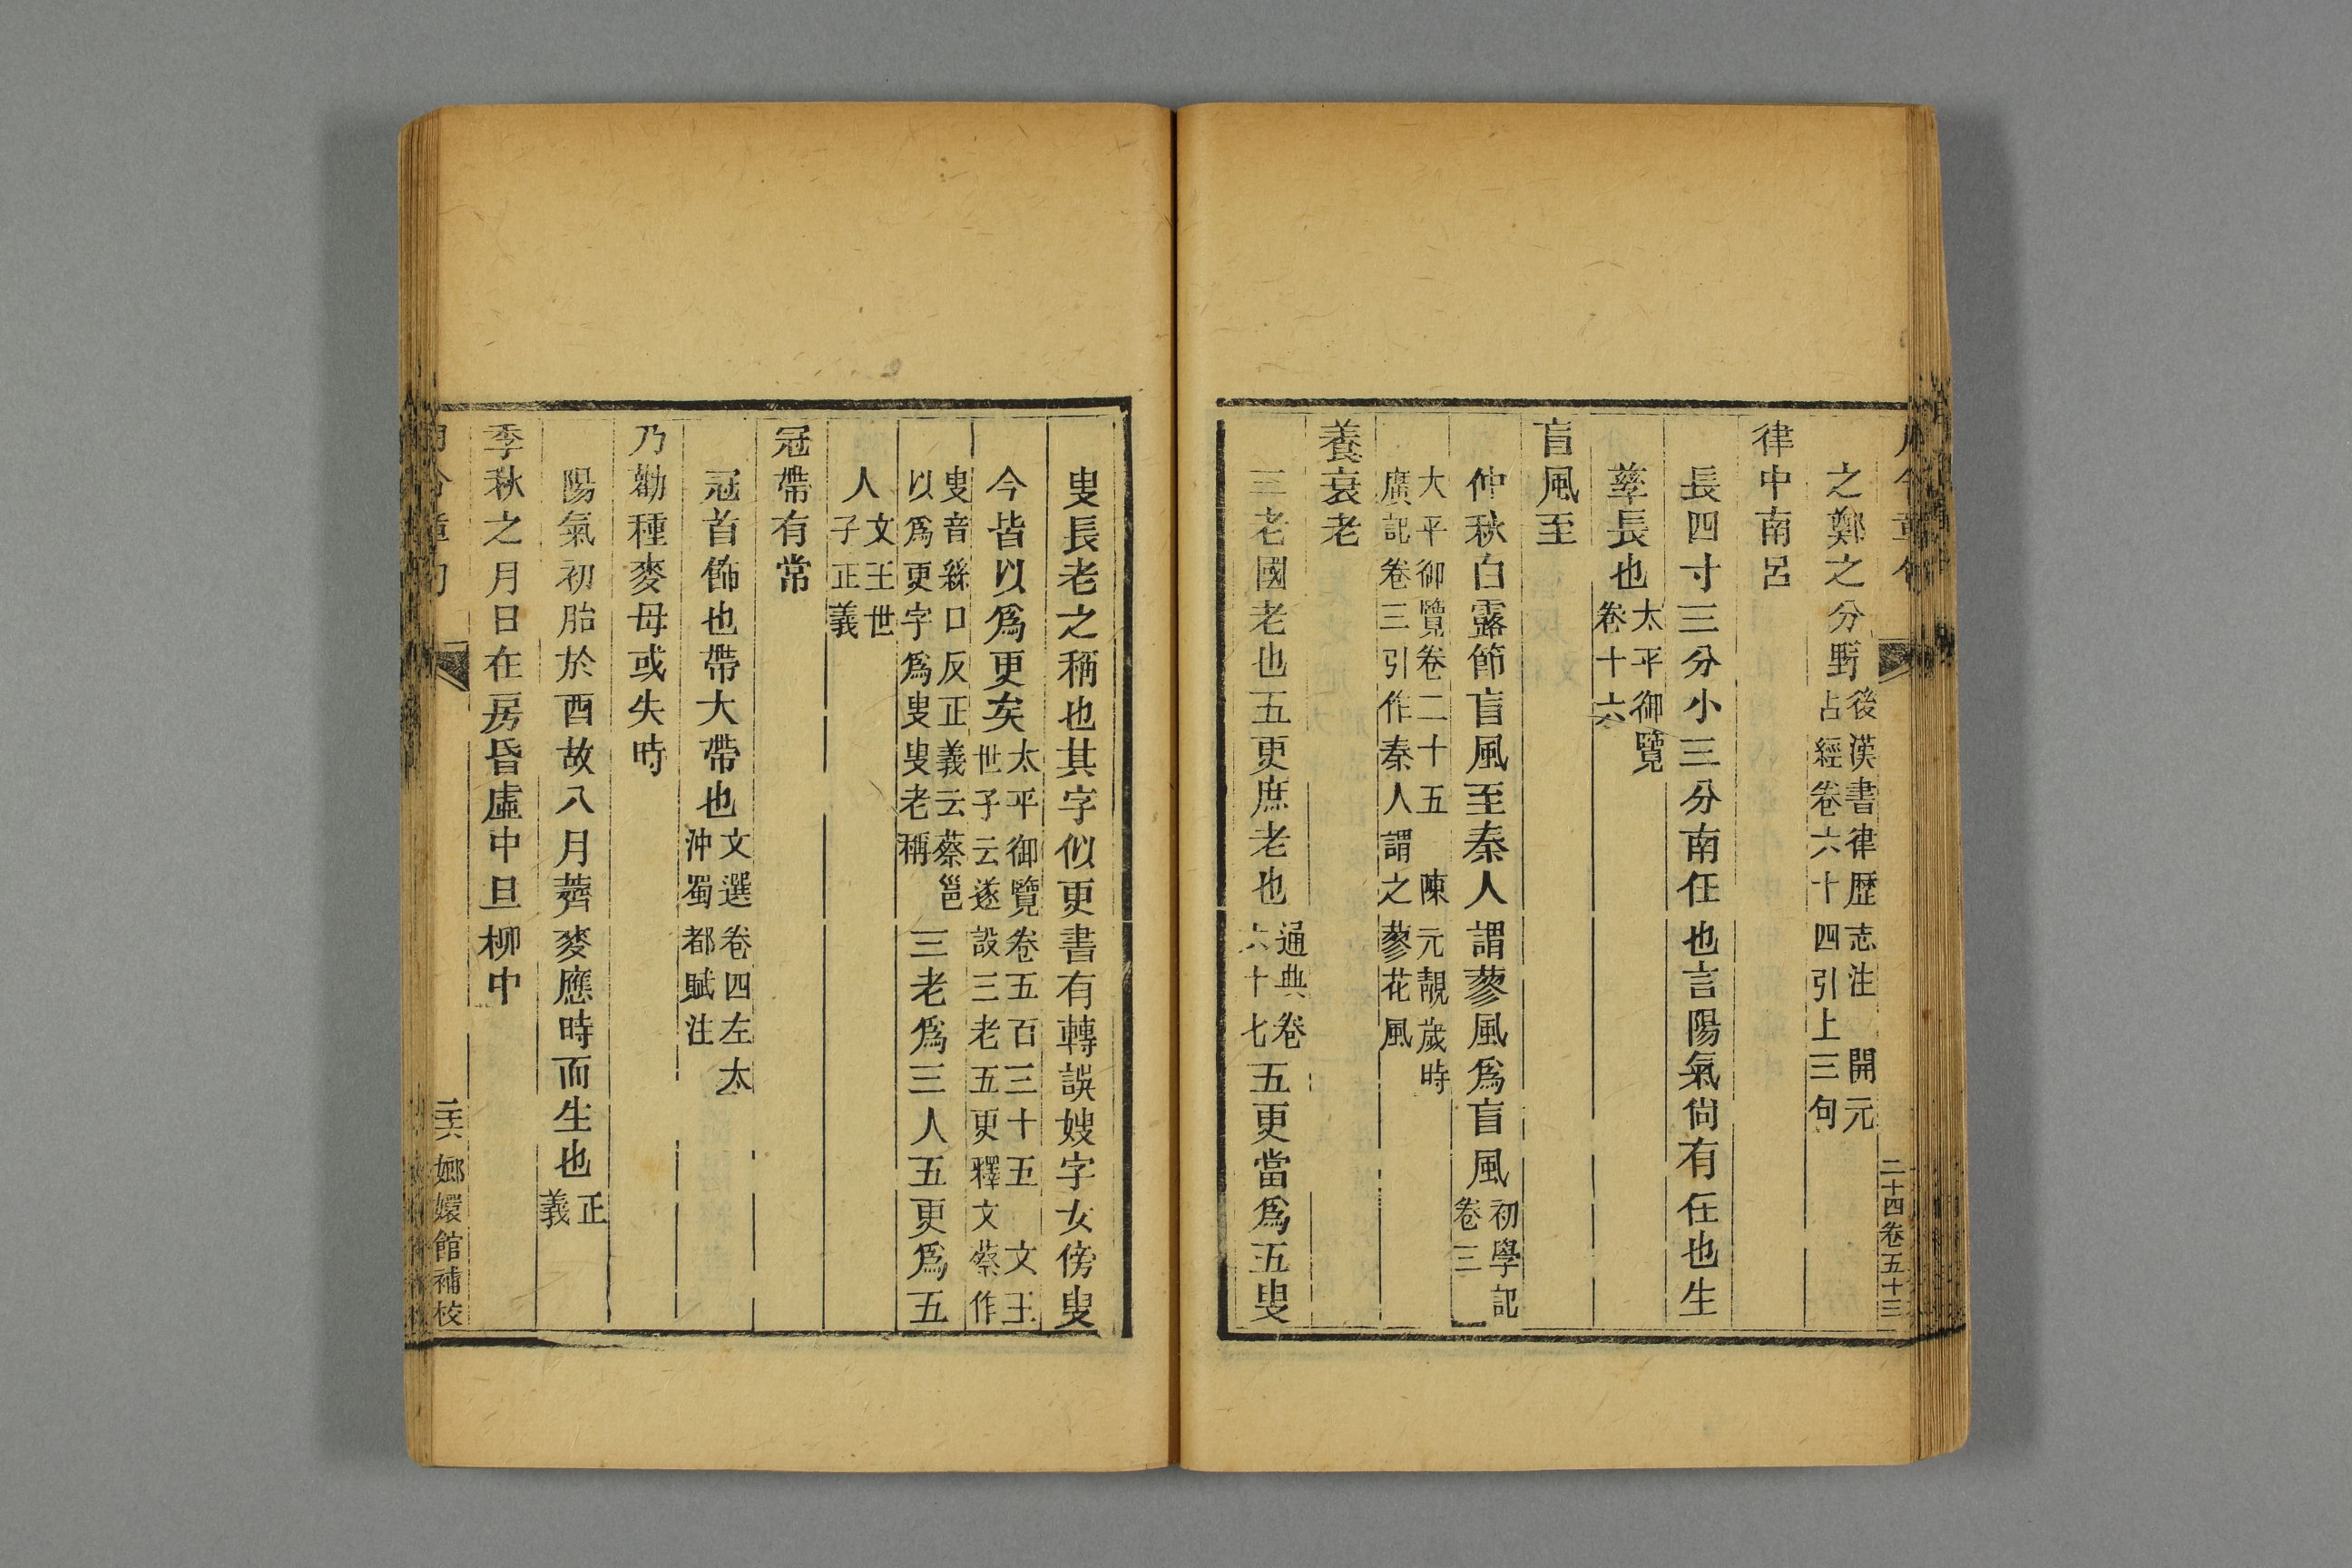 月令章句
二十四卷五十三
之鄭之分野後漢書律歷志注 開元
占經卷六十四引上三句
律中南呂
長四寸三分小三分南任也言陽氣尙有任也生
孳長也太平御覽
卷十六
盲風至
仲秋白露節盲風至秦人謂蓼風爲盲風初學記
卷三
大平御覽卷二十五 陳元靚歲時
廣記卷三引作秦人謂之蓼花風
養衰老
三老國老也五更庶老也通典卷
六十七五更當爲五叟
叟長老之稱也其字似更書有轉誤嫂字女傍叟
今皆以爲更矣太平御覽卷五百三十五 文王
世子云遂設三老五更釋文蔡作
叟音緐口反正義云蔡邕
以爲更字爲叟叟老稱三老爲三人五更爲五
人文王世
子正義
冠帶有常
冠首飾也帶大帶也文選卷四左太
沖蜀都賦注
乃勸種麥毋或失時
陽氣初胎於酉故八月薺麥應時而生也正
義
季秋之月日在房昏虛中旦柳中
月令章句
二六
嫏嬛館補校